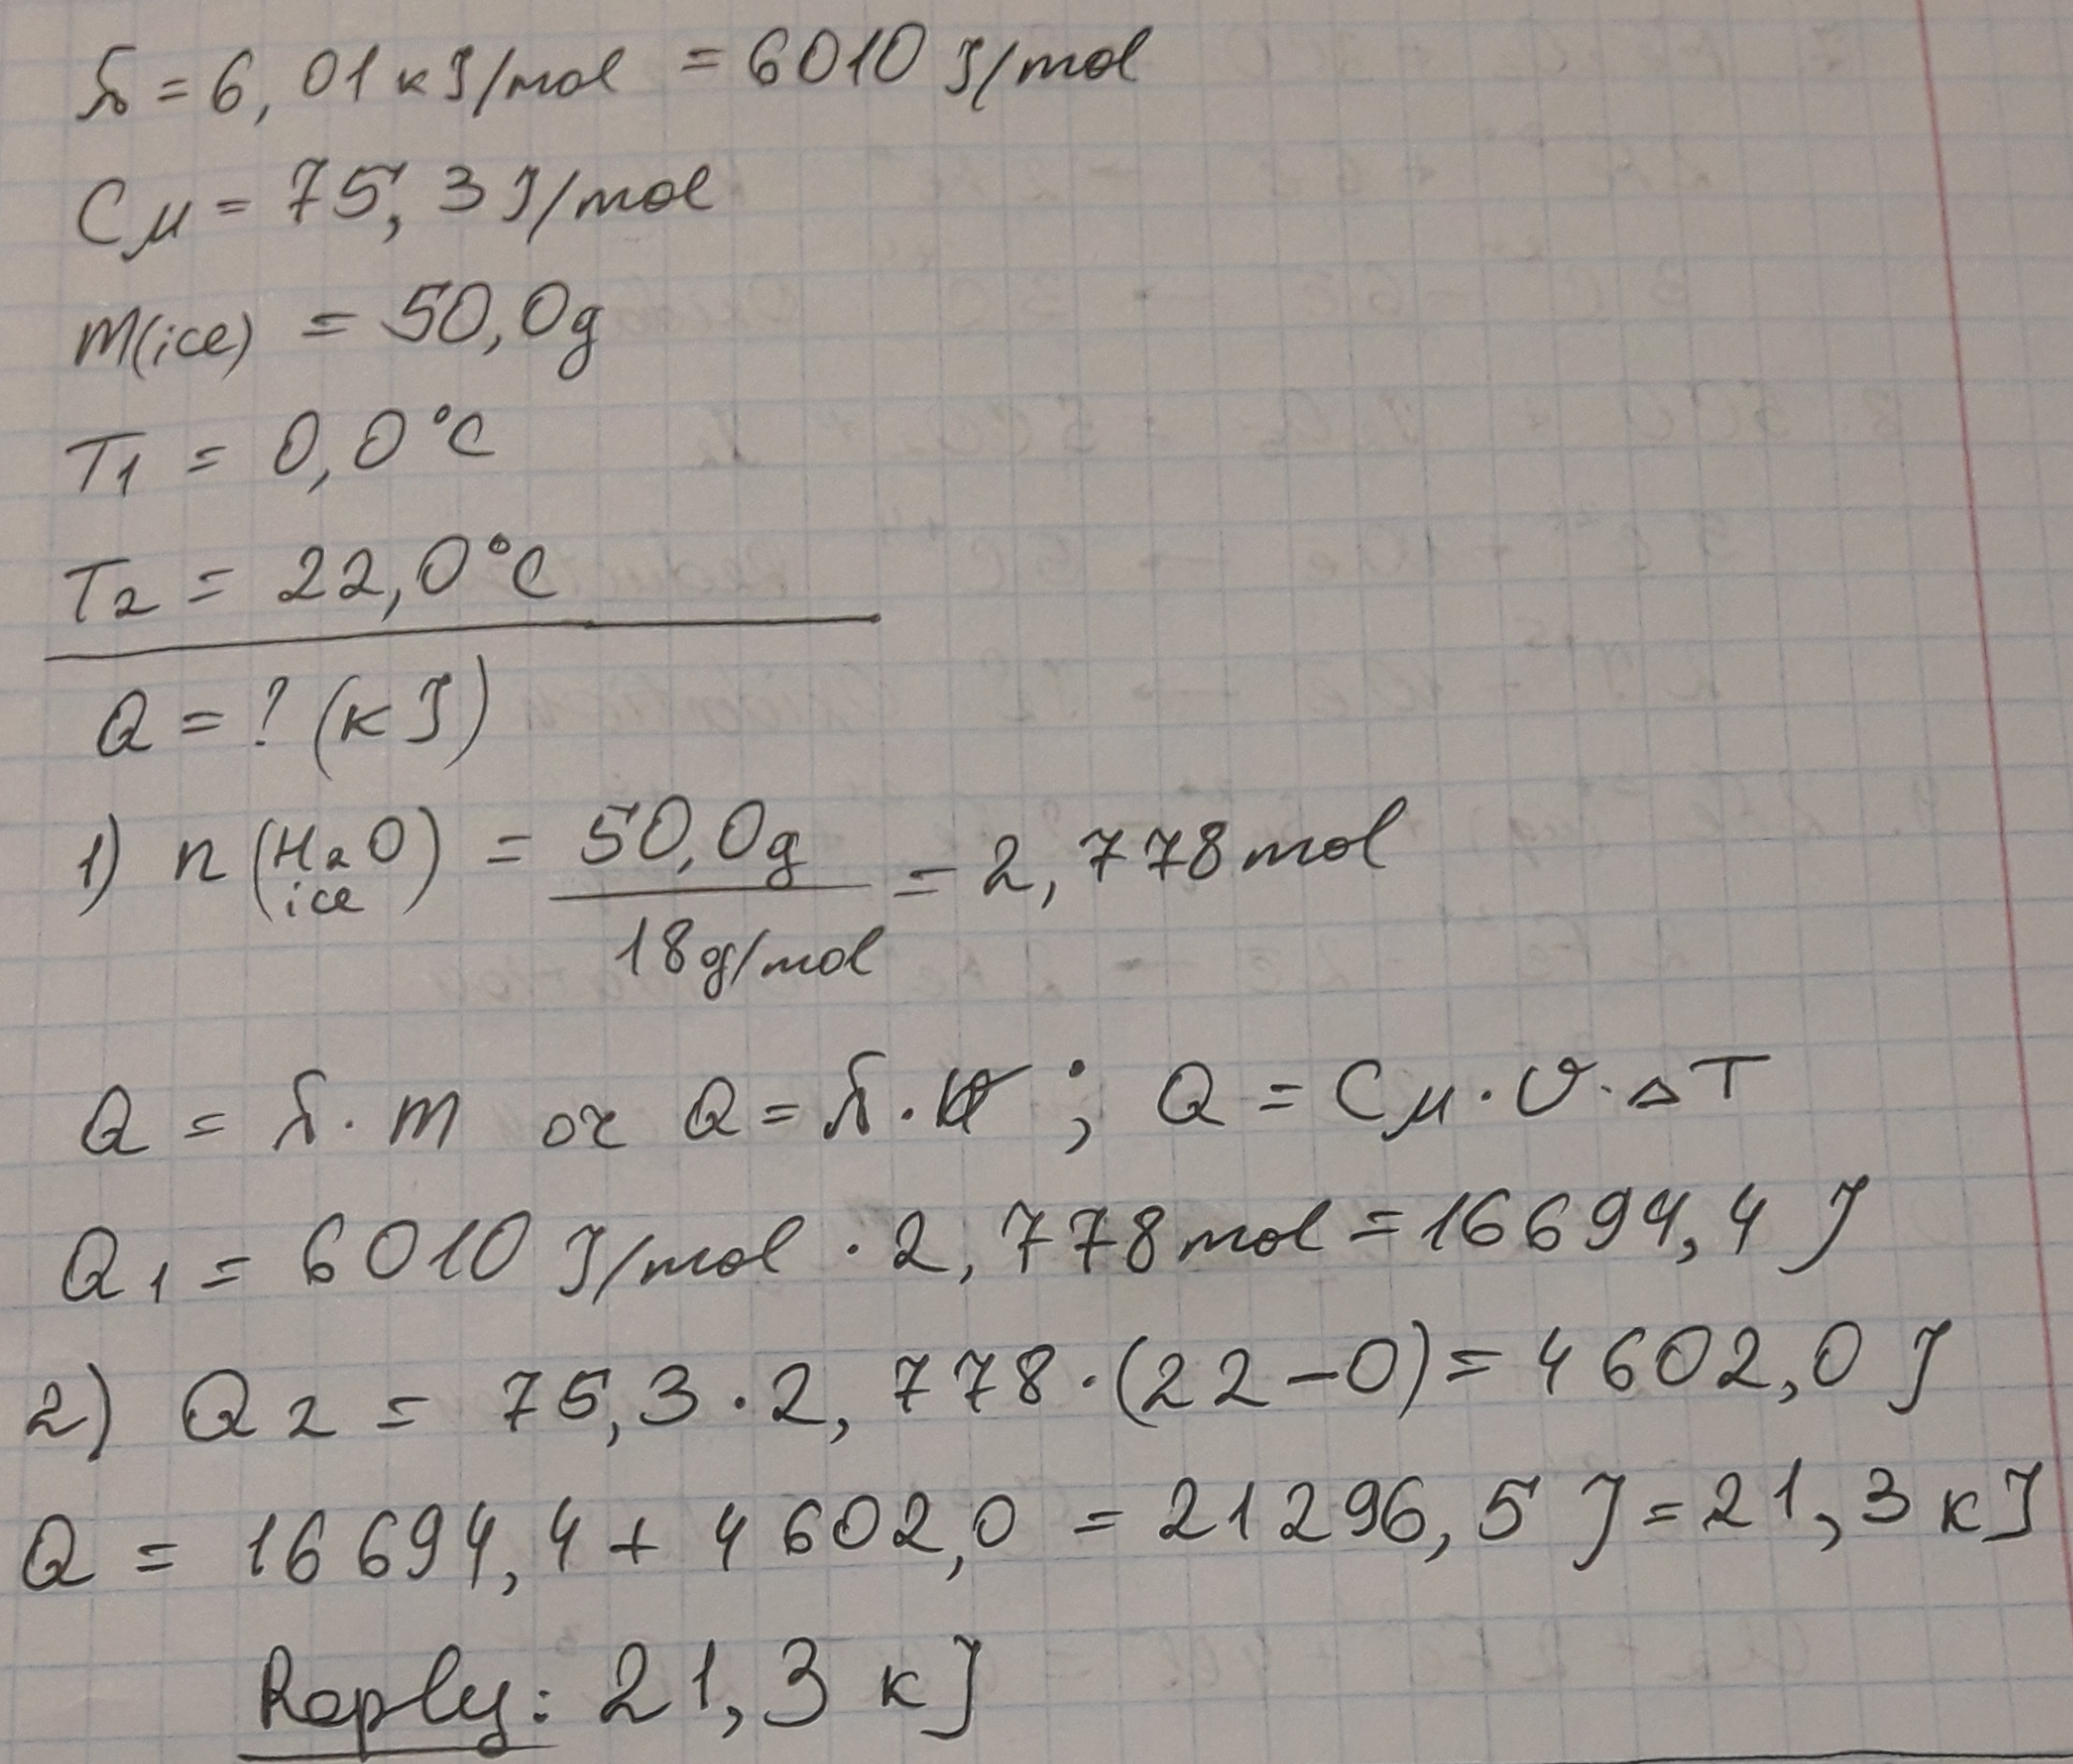 λ = 6,01 кJ/mol = 6010 J/mol
Cμ = 75,3 J/mol
m(ice) = 50,0g
T1 = 0,0°C
T2 = 22,0°C
Q = ? (кJ)
1) n (H2O ice) = 50,0g / 18g/mol = 2,778 mol
Q = λ · m or Q = λ · ν ; Q = Cμ · ν · ΔT
Q1 = 6010 J/mol · 2,778 mol = 16694,4 J
2) Q2 = 75,3 · 2,778 · (22-0) = 4602,0 J
Q = 16694,4 + 4602,0 = 21296,5 J = 21,3 кJ
Reply: 21,3 кJ